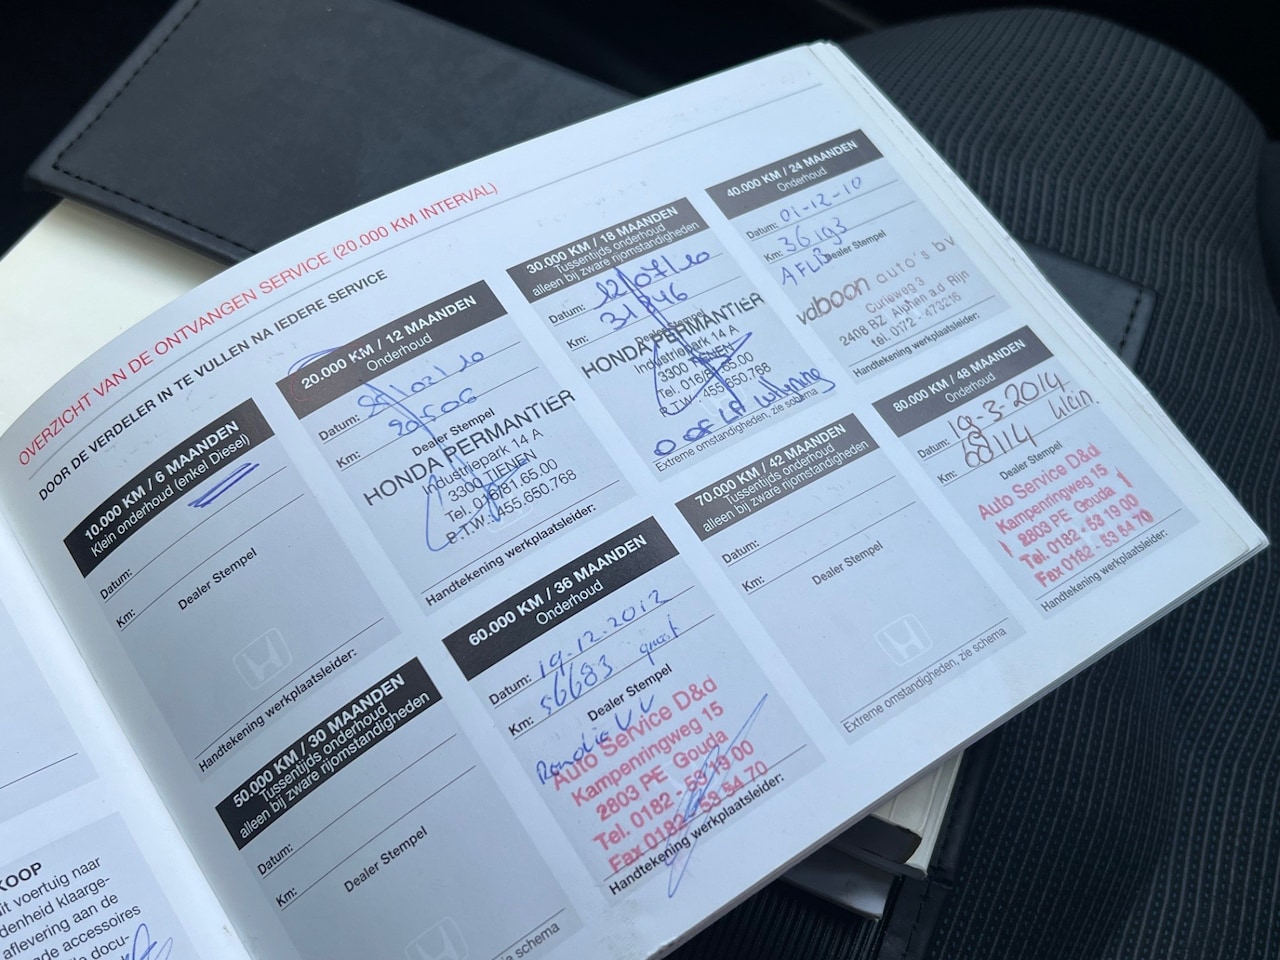 OVERZICHT VAN DE ONTVANGEN SERVICE (20.000 KM INTERVAL)
DOOR DE VERDELER IN TE VULLEN NA IEDERE SERVICE
10.000 KM / 6 MAANDEN
Klein onderhoud (enkel Diesel)
Datum:
Km:
Dealer Stempel
Handtekening werkplaatsleider:
20.000 KM / 12 MAANDEN
Onderhoud
Datum:
Km:
Dealer Stempel
HONDA PERMANTIER
Industriepark 14 A
3300 TIENEN
Tel. 016/81.65.00
B.T.W. 455.650.768
Handtekening werkplaatsleider:
30.000 KM / 18 MAANDEN
Tussentijds onderhoud
alleen bij zware rijomstandigheden
Datum: 12/07/20
Km: 31846
Dealer Stempel
HONDA PERMANTIER
Industriepark 14 A
3300 TIENEN
Tel. 016/81.65.00
B.T.W. 455.650.768
Extreme omstandigheden, zie schema
40.000 KM / 24 MAANDEN
Onderhoud
Datum: 01-12-10
Km: 36193
Dealer Stempel
vdboon auto's bv
Curieweg 3
2408 BZ Alphen a.d. Rijn
tel. 0172 - 473216
Handtekening werkplaatsleider:
50.000 KM / 30 MAANDEN
Tussentijds onderhoud
alleen bij zware rijomstandigheden
Datum:
Km:
Dealer Stempel
schema
60.000 KM / 36 MAANDEN
Onderhoud
Datum: 19-12-2012
Km: 56683 groot
Dealer Stempel
Auto Service D&d
Kampenringweg 15
2803 PE Gouda
Tel. 0182 - 53 19 00
Fax 0182 - 53 54 70
Handtekening werkplaatsleider:
70.000 KM / 42 MAANDEN
Tussentijds onderhoud
alleen bij zware rijomstandigheden
Datum:
Km:
Dealer Stempel
Extreme omstandigheden, zie schema
80.000 KM / 48 MAANDEN
Onderhoud
Datum: 19-3-2014
Km: 68114 klein.
Dealer Stempel
Auto Service D&d
Kampenringweg 15
2803 PE Gouda
Tel. 0182 - 53 19 00
Fax 0182 - 53 54 70
Handtekening werkplaatsleider:
KOOP
it voertuig naar
denheid klaarge-
aflevering aan de
de accessoires
docu-